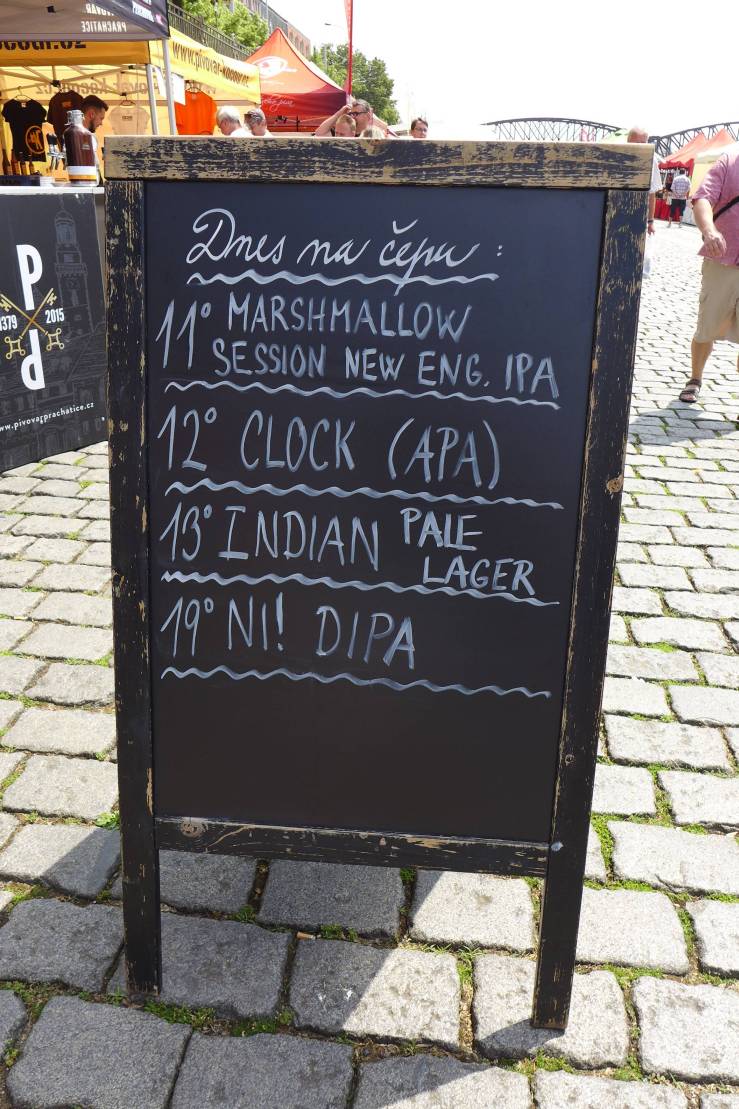 PRACHATICE
www.pivovar-kocour.cz
Dnes na čepu :
11° MARSHMALLOW
SESSION NEW ENG. IPA
12° CLOCK (APA)
13° INDIAN PALE
LAGER
19° NI! DIPA
P
1379 2015
P
www.pivovarprachatice.cz